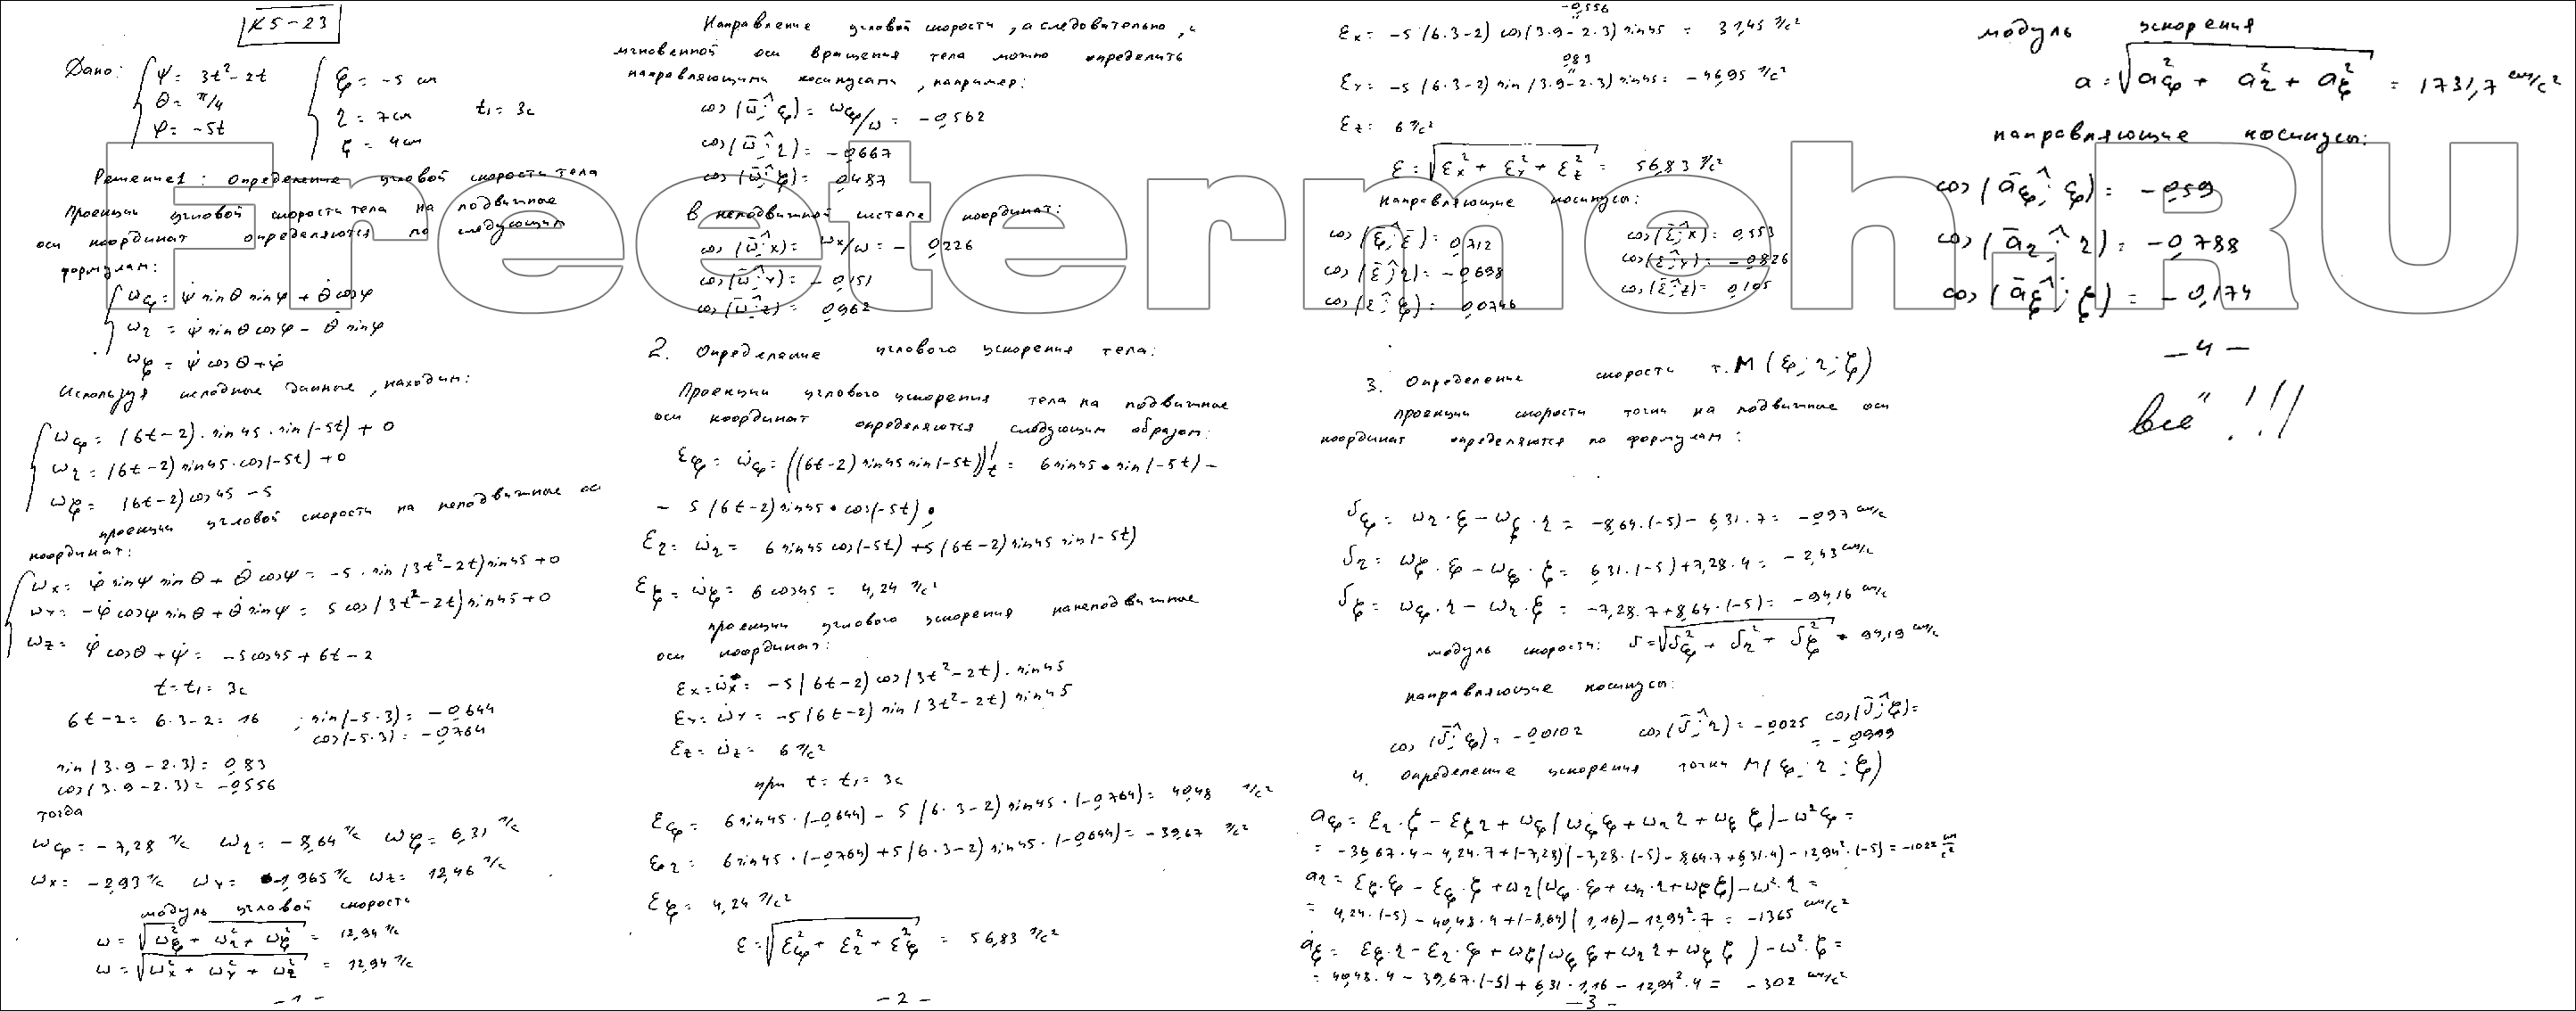 К5-23
Дано: ψ = 3t²-2t   ξ = -5 см
θ = π/4   η = 7см   t₁ = 3с
φ = -5t   ζ = 4см
Решение1: Определение угловой скорости тела
Проекции угловой скорости тела на подвижное
оси координат определяются по следующим
формулам:
ωξ = ψ̇ sinθ sinφ + θ̇ cosφ
ωη = ψ̇ sinθ cosφ - θ̇ sinφ
ωζ = ψ̇ cosθ + φ̇
Используя исходные данные, находим:
ωξ = (6t-2)·sin45·sin(-5t) + 0
ωη = (6t-2) sin45·cos(-5t) + 0
ωζ = (6t-2) cos45 - 5
проекции угловой скорости на неподвижное оси
координат:
ωx = φ̇ sinψ sinθ + θ̇ cosψ = -5·sin(3t²-2t) sin45 + 0
ωY = -φ̇ cosψ sinθ + θ̇ sinψ = 5 cos(3t²-2t) sin45 + 0
ωz = φ̇ cosθ + ψ̇ = -5cos45 + 6t - 2
t = t₁ = 3с
6t-2 = 6·3-2 = 16 ; sin(-5·3) = -0,644
cos(-5·3) = -0,764
sin(3·9-2·3) = 0,83
cos(3·9-2·3) = -0,556
тогда
ωξ = -7,28 1/с   ωη = -8,64 1/с   ωζ = 6,31 1/с
ωx = -2,93 1/с   ωY = -1,965 1/с   ωz = 12,46 1/с
модуль угловой скорости
ω = √(ωξ² + ωη² + ωζ²) = 12,94 1/с
ω = √(ωx² + ωY² + ωz²) = 12,94 1/с
-1-
Направление угловой скорости, а следовательно, и
мгновенной оси вращения тела можно определить
направляющими косинусами, например:
cos(ω̄;^ξ) = ωξ/ω = -0,562
cos(ω̄;^η) = -0,667
cos(ω̄;^ζ) = 0,487
В неподвижной системе координат:
cos(ω̄;^x) = ωx/ω = -0,226
cos(ω̄;^Y) = -0,151
cos(ω̄;^z) = 0,962
2. Определение углового ускорения тела:
Проекции углового ускорения тела на подвижное
оси координат определяются следующим образом:
εξ = ω̇ξ = ((6t-2) sin45 sin(-5t))'t = 6sin45·sin(-5t) -
- 5(6t-2) sin45·cos(-5t).
εη = ω̇η = 6sin45 cos(-5t) + 5(6t-2) sin45 sin(-5t)
εζ = ω̇ζ = 6cos45 = 4,24 1/с²
проекции углового ускорения на неподвижное
оси координат:
εx = ω̇x = -5(6t-2) cos(3t²-2t)·sin45
εY = ω̇Y = -5(6t-2) sin(3t²-2t) sin45
εz = ω̇z = 6 1/с²
при t = t₁ = 3с
εξ = 6sin45·(-0,644) - 5(6·3-2) sin45·(-0,764) = 40,48 1/с²
εη = 6sin45·(-0,764) + 5(6·3-2) sin45·(-0,644) = -39,67 1/с²
εζ = 4,24 1/с²
ε = √(εξ² + εη² + εζ²) = 56,83 1/с²
-2-
-0,556
εx = -5(6·3-2) cos(3·9-2·3) sin45 = 31,45 1/с²
0,83
εY = -5(6·3-2) sin(3·9-2·3) sin45 = -46,95 1/с²
εz = 6 1/с²
ε = √(εx² + εY² + εz²) = 56,83 1/с²
Направляющие косинусы:
cos(ξ;^ε̄) = 0,712   cos(ε̄;^x) = 0,553
cos(ε̄;^η) = -0,698   cos(ε̄;^Y) = -0,826
cos(ε̄;^ζ) = 0,0746   cos(ε̄;^z) = 0,105
3. Определение скорости т. M(ξ; η; ζ)
проекции скорости точки на подвижное оси
координат определяются по формулам:
υξ = ωη·ξ - ωζ·η = -8,64·(-5) - 6,31·7 = -0,97 см/с
υη = ωζ·ξ - ωξ·ζ = 6,31·(-5) + 7,28·4 = -2,43 см/с
υζ = ωξ·η - ωη·ξ = -7,28·7 + 8,64·(-5) = -94,16 см/с
модуль скорости: υ = √(υξ² + υη² + υζ²) = 94,19 см/с
направляющие косинусы:
cos(ῡ;^ξ) = -0,0102   cos(ῡ;^η) = -0,025   cos(ῡ;^ζ) =
= -0,999
4. Определение ускорения точки M(ξ; η; ζ)
aξ = εη·ζ - εζ η + ωξ(ωξ ξ + ωη η + ωζ ζ) - ω² ξ =
= -36,67·4 - 4,24·7 + (-7,28)(-7,28·(-5) - 8,64·7 + 6,31·4) - 12,94²·(-5) = -1022 см/с²
aη = εζ·ξ - εξ·ζ + ωη(ωξ·ξ + ωη·η + ωζ ζ) - ω²·η =
= 4,24·(-5) - 40,48·4 + (-8,64)(1,16) - 12,94²·7 = -1365 см/с²
aζ = εξ·η - εη·ξ + ωζ(ωξ ξ + ωη η + ωζ ζ) - ω²·ζ =
= 40,48·4 - 39,67·(-5) + 6,31·1,16 - 12,94²·4 = -302 см/с²
-3-
модуль ускорения
a = √(aξ² + aη² + aζ²) = 1731,7 см/с²
направляющие косинусы:
cos(āξ;^ξ) = -0,59
cos(āη;^η) = -0,788
cos(āζ;^ζ) = -0,174
-4-
всё"!!!
Freetermeh.RU